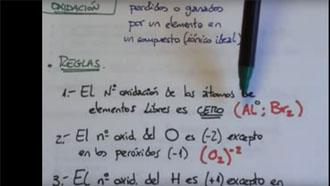 OXIDACIÓN
perdidos o ganados
por un elemento en
un compuesto (iónico ideal)
• REGLAS.
1.- El Nº oxidación de los átomos de
elementos libres es CERO (Al⁰; Br₂)
2.- El nº oxid. del O es (-2) excepto
en los peróxidos (-1) (O₂)⁻²
3.- El nº oxid. del H es (+1) excepto en